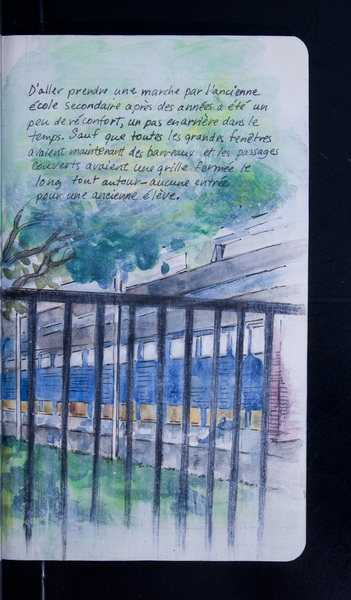 D'aller prendre une marche par l'ancienne
école secondaire après des années a été un
peu de réconfort, un pas en arrière dans le
temps. Sauf que toutes les grandes fenêtres
avaient maintenant des barreaux et les passages
couverts avaient une grille fermée le
long tout autour – aucune entrée
pour une ancienne élève.